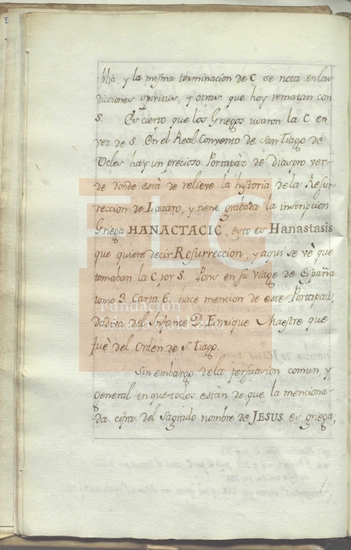 blia y la misma terminacion de C se nota en las
dicciones spiritus, y otras que hoy rematan con
S. Es cierto que los Griegos usaron la C en
vez de S. En el Real Convento de Santiago de
Ucles hay un precioso Portapaz de Diaspro ver-
de donde está de relieve la historia de la Resu-
rreccion de Lazaro, y tiene grabada la inscripcion
Griega HANACTACIC, esto es Hanastasis
que quiere decir Resurreccion, y aqui se vè que
tomaban la C por S. Pons en su viage de España
tomo 3. Carta 6. hace mencion de este Portapaz,
dadiva del Infante Dn. Enrique Maestre que
fuè del Orden de S.tiago.
Sin embargo de la persuasion comun y
general en que todos estàn de que la menciona-
da cifra del Sagrado nombre de JESUS es griega,
Fundación